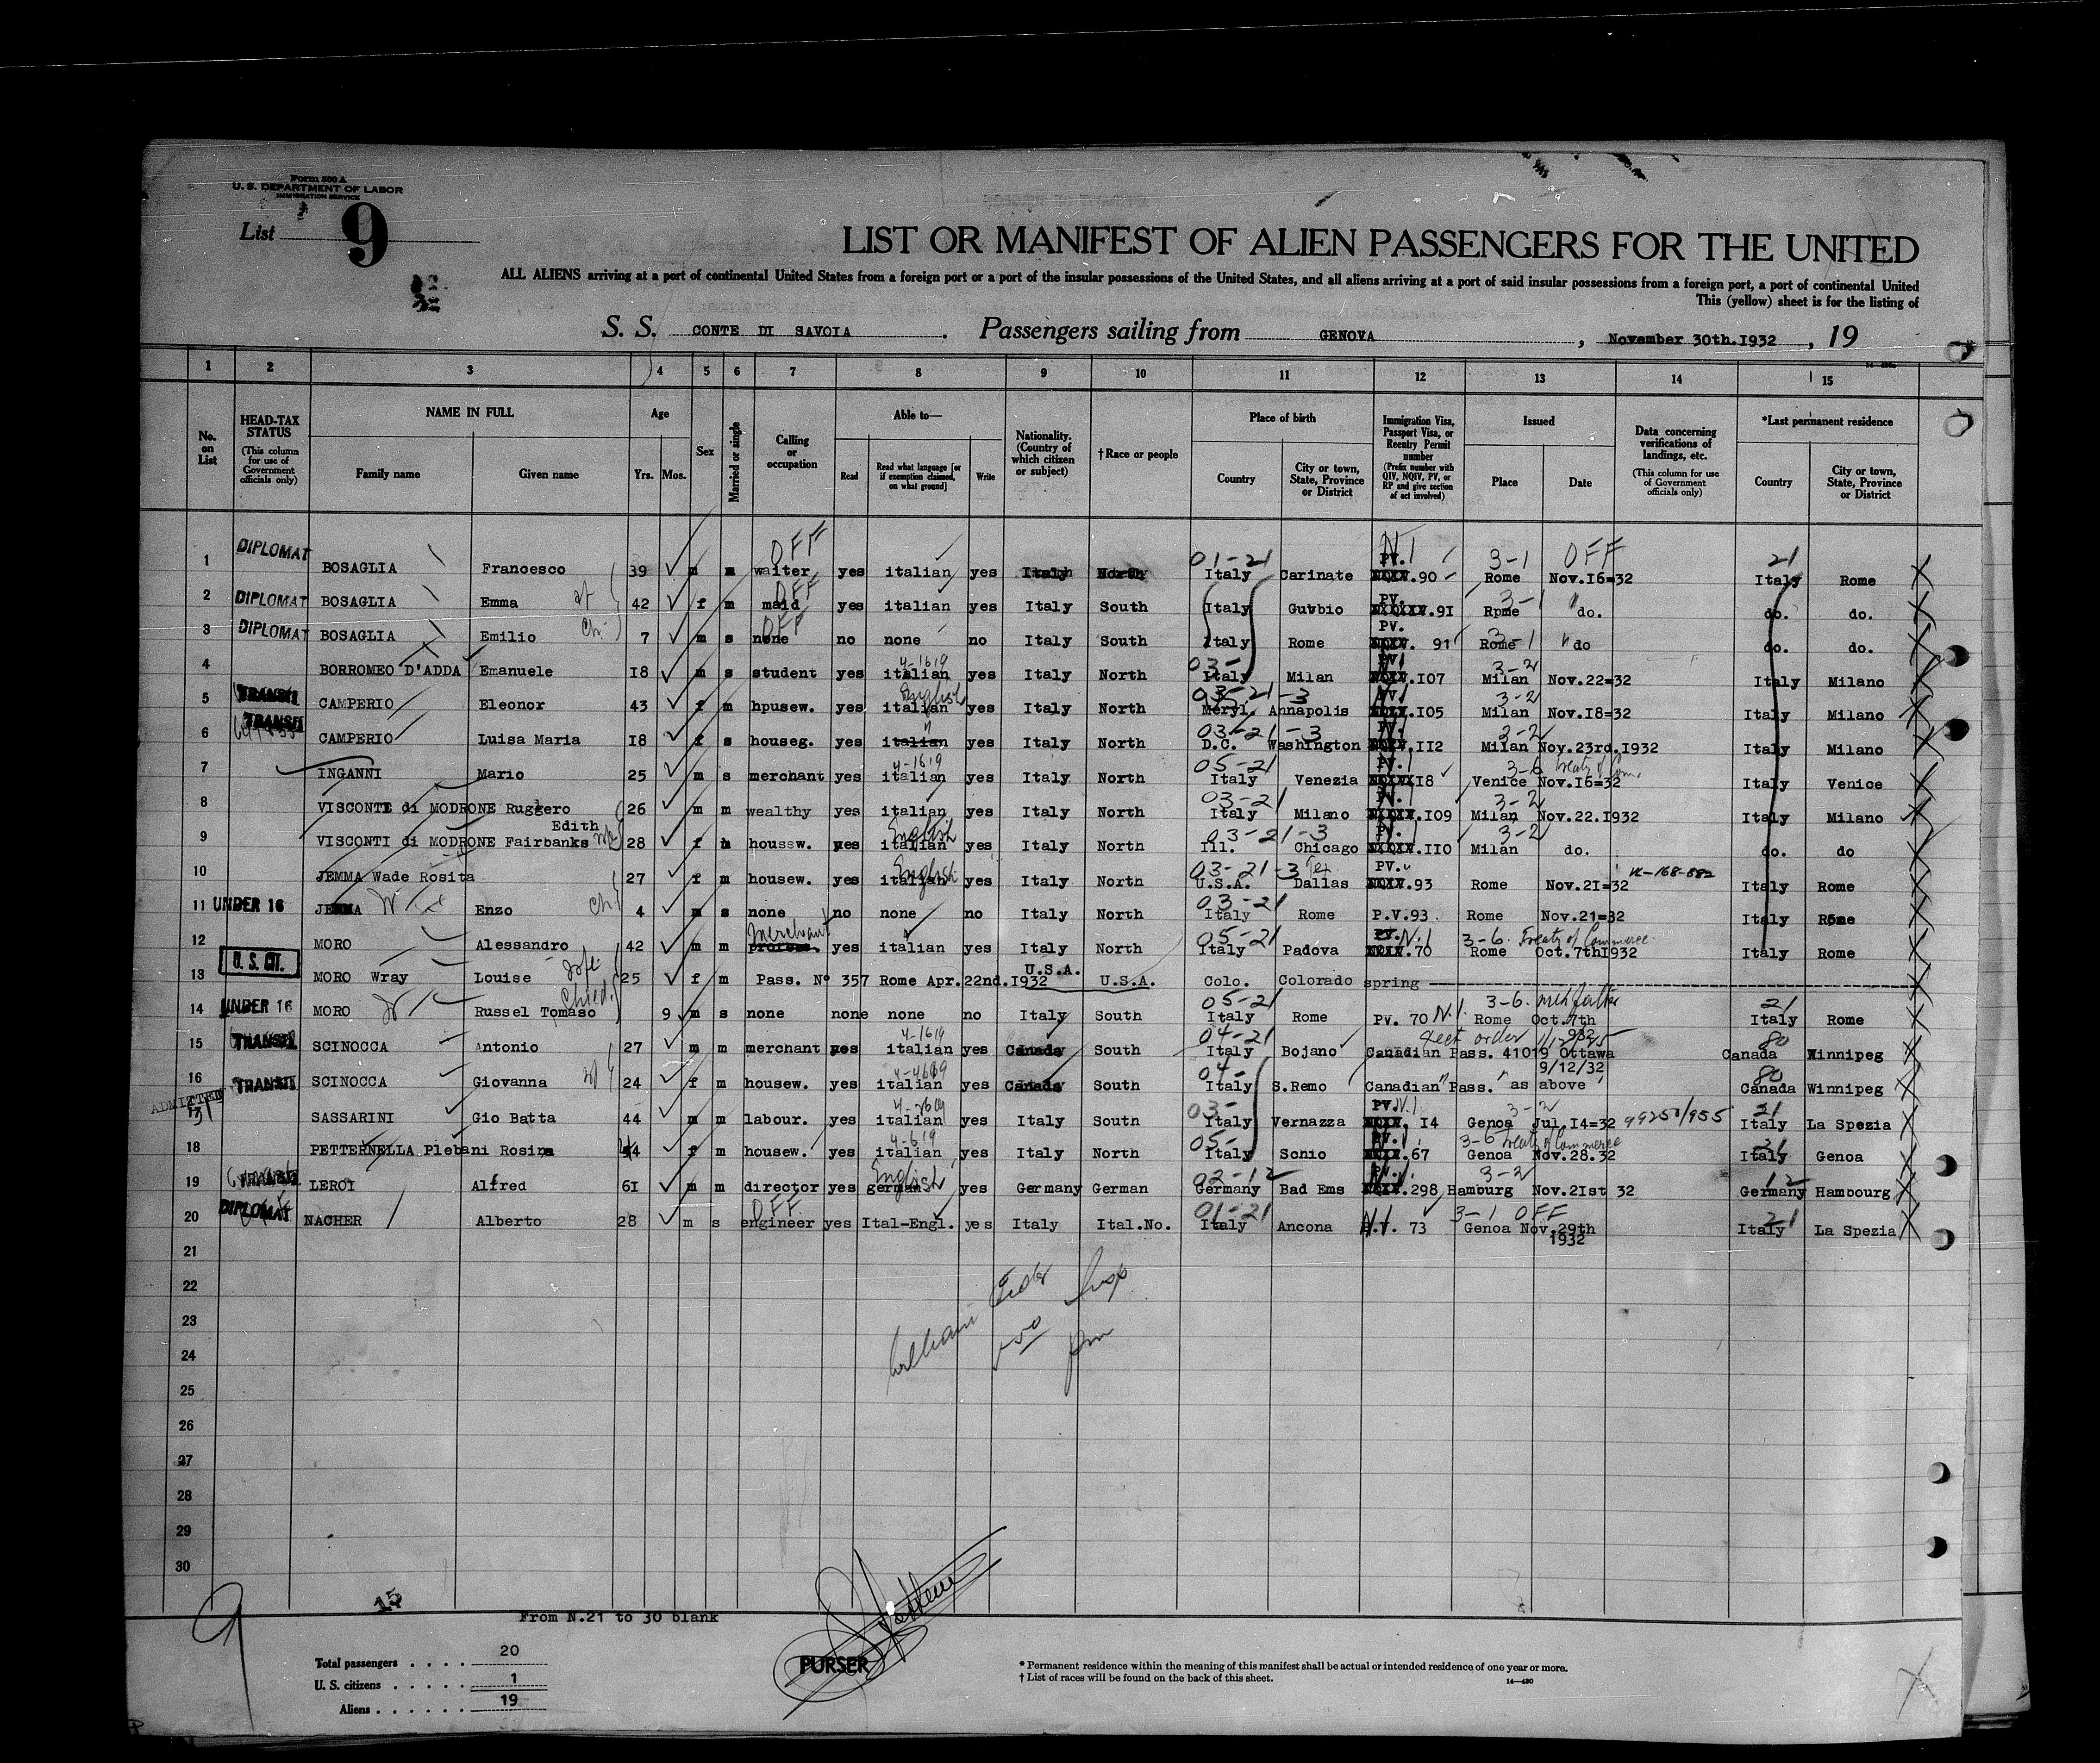 Form 500 A
U. S. DEPARTMENT OF LABOR
IMMIGRATION SERVICE
List 9
LIST OR MANIFEST OF ALIEN PASSENGERS FOR THE UNITED
ALL ALIENS arriving at a port of continental United States from a foreign port or a port of the insular possessions of the United States, and all aliens arriving at a port of said insular possessions from a foreign port, a port of continental United
This (yellow) sheet is for the listing of
S. S. CONTE DI SAVOIA . Passengers sailing from GENOVA , November 30th.I932 , 19
1 2 3 4 5 6 7 8 9 10 11 12 13 14 15
No. on List
HEAD-TAX STATUS (This column for use of Government officials only)
NAME IN FULL Family name Given name
Age Yrs. Mos.
Sex
Married or single
Calling or occupation
Able to— Read Read what language [or if exemption claimed, on what ground] Write
Nationality. (Country of which citizen or subject)
†Race or people
Place of birth Country City or town, State, Province or District
Immigration Visa, Passport Visa, or Reentry Permit number (Prefix number with QIV, NQIV, PV, or RP and give section of act involved)
Issued Place Date
Data concerning verifications of landings, etc. (This column for use of Government officials only)
*Last permanent residence Country City or town, State, Province or District
OFF 01-21 N.1 3-1 OFF 21
1 DIPLOMAT BOSAGLIA Francesco 39 m m waiter yes italian yes Italy North Italy Carinate PV. 90 Rome Nov.I6=32 Italy Rome
OFF 3-1
2 DIPLOMAT BOSAGLIA Emma 42 f m maid yes italian yes Italy South Italy Gubbio PV. 9I Rpme do. do. do.
OFF 3-1
3 DIPLOMAT BOSAGLIA Emilio ch. 7 m s none no none no Italy South Italy Rome PV. 91 Rome do do. do.
4-1619 03- 3-2
4 BORROMEO D'ADDA Emanuele I8 m s student yes italian yes Italy North Italy Milan PV. I07 Milan Nov.22=32 Italy Milano
English 03-21-3 3-2
5 TRANSIT CAMPERIO Eleonor 43 f m hpusew. yes italian yes Italy North Meryl. Annapolis PV. I05 Milan Nov.I8=32 Italy Milano
03-21-3 3-2
6 TRANSIT CAMPERIO Luisa Maria I8 f s houseg. yes italian yes Italy North D.C. Washington PV. II2 Milan Nov.23rd.I932 Italy Milano
4-1619 05-21 3-6 Treaty of Com.
7 INGANNI Mario 25 m s merchant yes italian yes Italy North Italy Venezia PV. I8 Venice Nov.I6=32 Italy Venice
03-21 3-2
8 VISCONTI di MODRONE Ruggero 26 m m wealthy yes italian yes Italy North Italy Milano PV. I09 Milan Nov.22.I932 Italy Milano
Edith English 03-21-3 3-2
9 VISCONTI di MODRONE Fairbanks 28 f m houssw. yes italian yes Italy North Ill. Chicago PV. II0 Milan do. do. do
English 03-21-3 Tex VL-168-882
10 JEMMA Wade Rosita 27 f m housew. yes italian yes Italy North U.S.A. Dallas PV. 93 Rome Nov.2I=32 Italy Rome
03-21
11 UNDER 16 JEMMA Enzo ch. 4 m s none no none no Italy North Italy Rome P.V.93 Rome Nov.21=32 Italy Rome
Merchant 05-21 N.1 3-6. Treaty of Commerce
12 MORO Alessandro 42 m m yes italian yes Italy North Italy Padova PV. 70 Rome Oct.7thI932 Italy Rome
13 U. S. CIT. MORO Wray Louise wfe. 25 f m Pass. Nº 357 Rome Apr.22nd.I932 U.S.A. U.S.A. Colo. Colorado spring
Child. 05-21 3-6. 21
14 UNDER 16 MORO Russel Tomaso 9 m s none none none no Italy South Italy Rome PV. 70 N.1. Rome Oct.7th 932 Italy Rome
4-1619 04-21 80
15 TRANSIT SCINOCCA Antonio 27 m m merchant yes italian yes Canada South Italy Bojano Canadian Pass. 41019 Ottawa Canada Winnipeg
9/12/32
04- 80
16 TRANSIT SCINOCCA Giovanna 24 f m housew. yes italian yes Canada South Italy S.Remo Canadian Pass. as above Canada Winnipeg
ADMITTED 03- N.1 3-2 21
SASSARINI Gio Batta 44 m m labour. yes italian yes Italy South Italy Vernazza PV. I4 Genoa Jul.I4=32 99250/955 Italy La Spezia
4-619 05- 3-6 Treaty of Commerce
18 PETTERNELLA Plebani Rosina f m housew. yes italian yes Italy North Italy Sonio PV. 67 Genoa Nov.28.32 Italy Genoa
English 02-12 3-2 12
19 LEROI Alfred 6I m m director yes german yes Germany German Germany Bad Ems PV. 298 Hamburg Nov.2Ist 32 Germany Hambourg
OFF 01-21 N.1 3-1 OFF 21
20 DIPLOMAT NACHER Alberto 28 m s engineer yes Ital-Engl. yes Italy Ital.No. Italy Ancona P.V. 73 Genoa Nov.29th 1932 Italy La Spezia
21
22
23
24
25
26
27
28
29
30
9
15
From N.21 to 30 blank
Total passengers . . . . 20
U. S. citizens . . . . . 1
Aliens . . . . . . 19
PURSER
* Permanent residence within the meaning of this manifest shall be actual or intended residence of one year or more.
† List of races will be found on the back of this sheet.
14—430